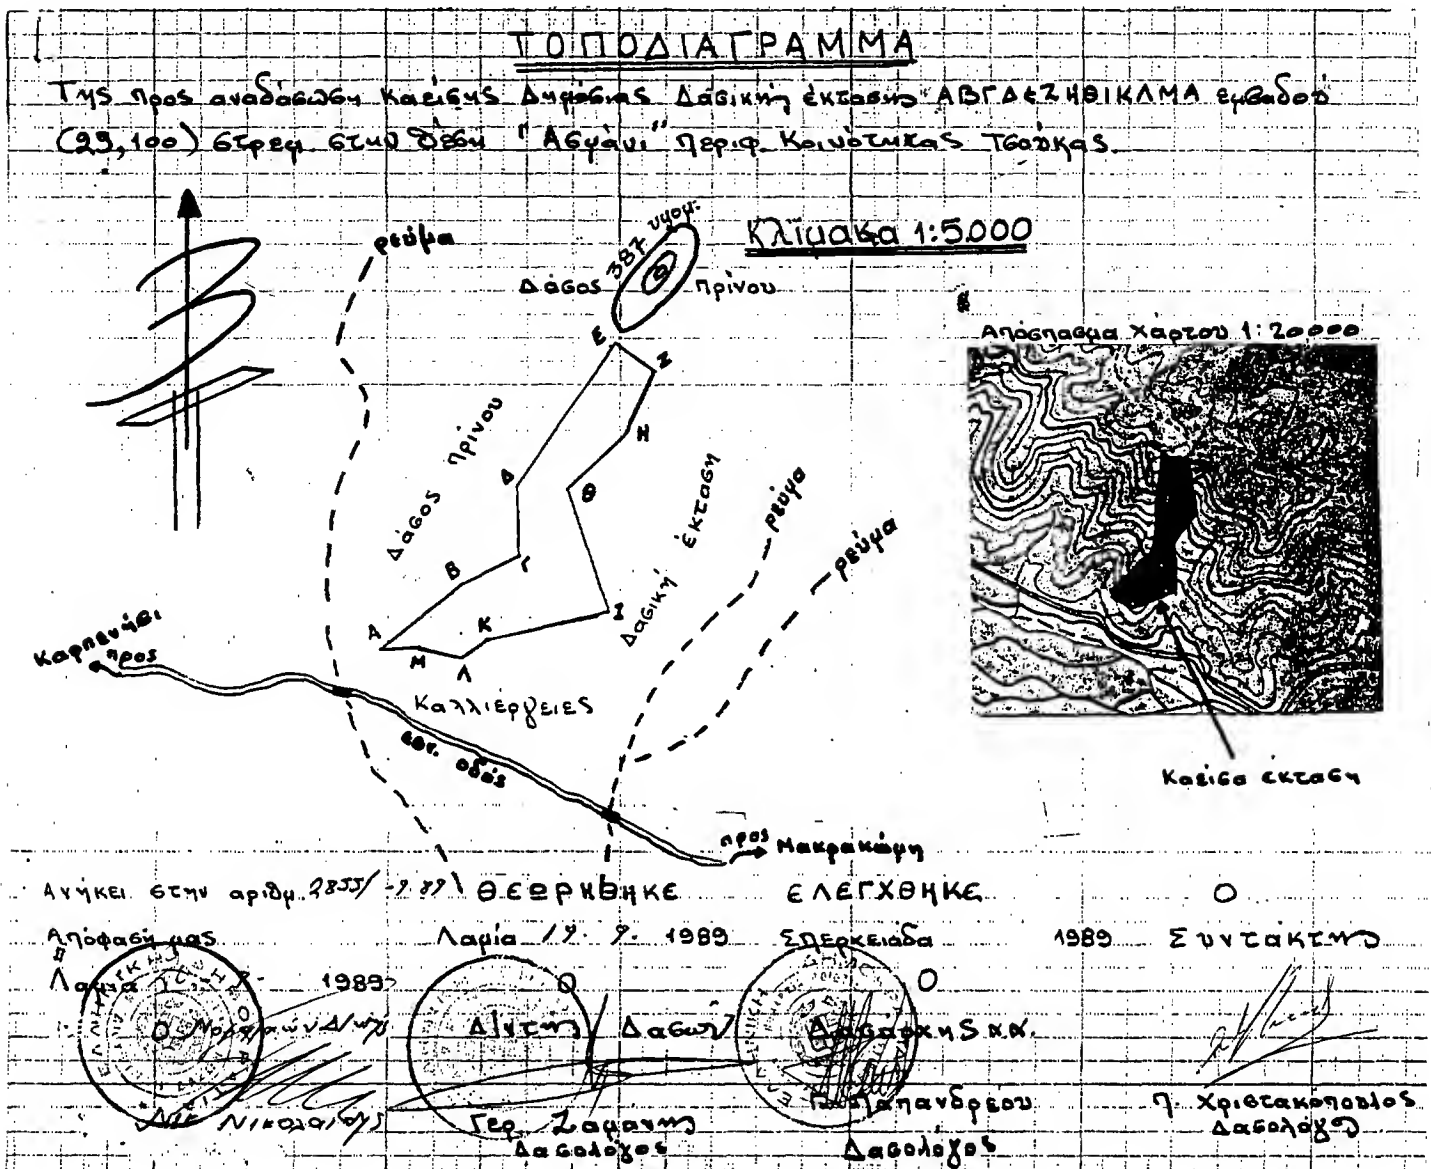 ΤΟΠΟΔΙΑΓΡΑΜΜΑ
Της προς αναδάσωση καείσης Δημόσιας Δασικής έκτασης ΑΒΓΔΕΖΗΘΙΚΛΜΑ εμβαδού
(29,100) στρεμ. στην θέση "Ασμάνι" περιφ. Κοινότητας Τσούκας.
Κλίμακα 1:5.000
ρεύμα
387 υψομ.
Δάσος πρίνου
Απόσπασμα Χάρτου 1:20000
Ε
Ζ
Δάσος πρίνου
Η
Δ
Θ
Δασική έκταση
ρεύμα
ρεύμα
Β
Γ
Ι
Α
Κ
Μ
Λ
προς Καρπενήσι
Καλλιέργειες
εθν. οδός
προς Μακρακώμη
Καείσα έκταση
Ανήκει στην αριθμ. 2855/ -9.89
Απόφασή μας
Λαμία 1989
ΘΕΩΡΗΘΗΚΕ
Λαμία 19. 9. 1989
Ο
Δ/ντης Δασών
Γερ. Ζαμάνης
Δασολόγος
ΕΛΕΓΧΘΗΚΕ
Σπερχειάδα 1989
Ο
Δασάρχης κ.α.
Παπανδρέου
Δασολόγος
Ο
Συντάκτης
Π. Χριστακόπουλος
Δασολόγος